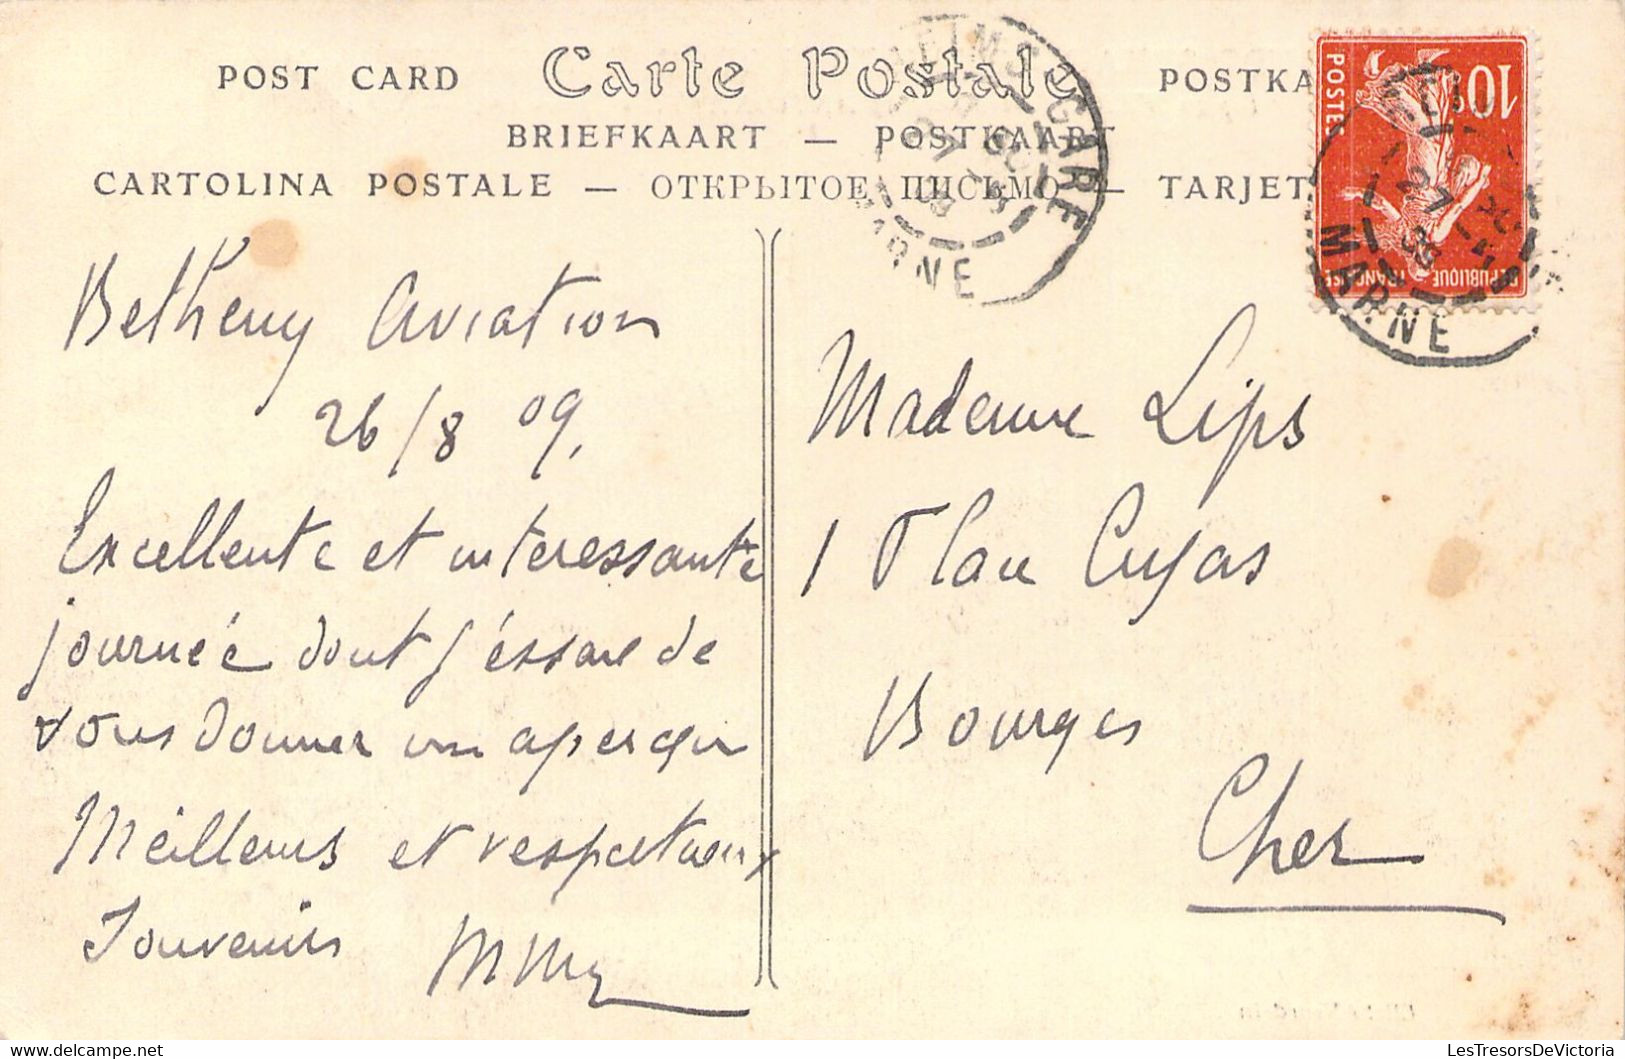 POST CARD Carte Postale POSTKA
BRIEFKAART — POSTKAART
CARTOLINA POSTALE — ОТКРЫТОЕ ПИСЬМО — TARJET
10c
POSTES
REPUBLIQUE FRANÇAISE
GARE
MARNE
27
MARNE
Betheny Aviation
26/8 09.
Excellente et interessante
journée dont j'éssaie de
vous donner un aperçu
Meilleurs et respectueux
Souvenirs
Madame Lips
1 Place Cujas
Bourges
Cher
LesTresorsDeVictoria.com